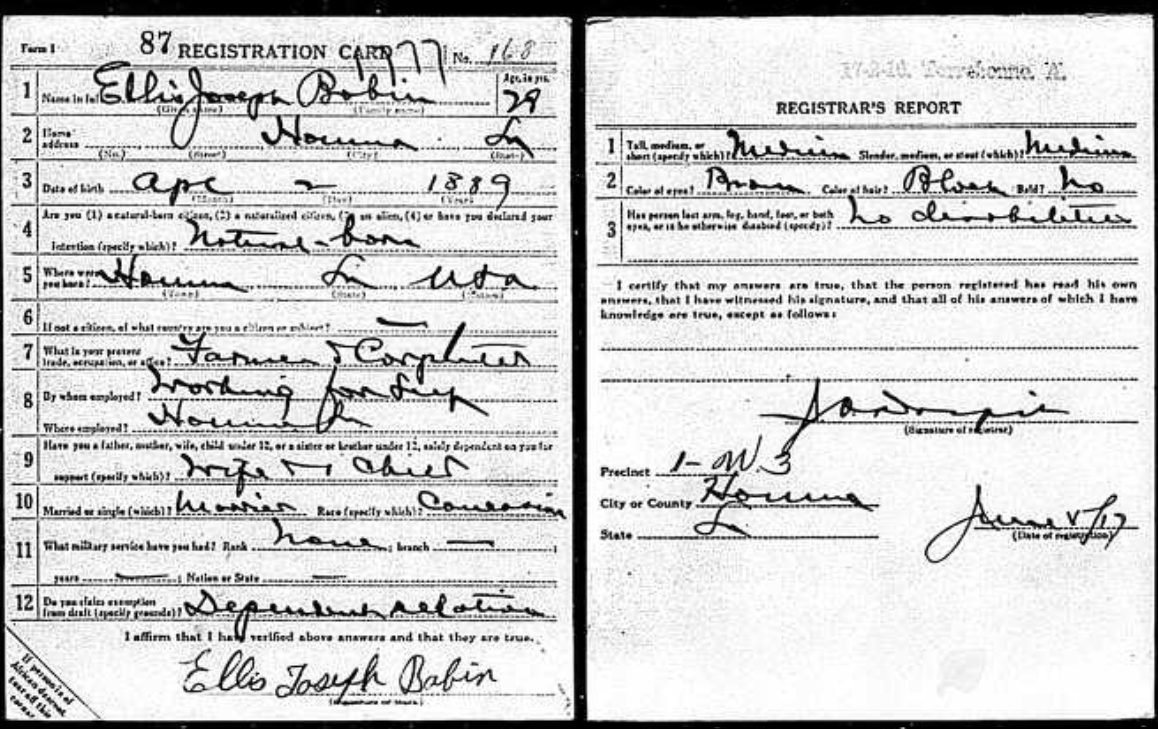 Form 1 87 REGISTRATION CARD 1977 No. 168
1 Name in full Ellis Joseph Babin Age, in yrs. 28
(Given name) (Family name)
2 Home address Houma La
(No.) (Street) (City) (State)
3 Date of birth Apr 2 1889
(Month) (Day) (Year)
4 Are you (1) a natural-born citizen, (2) a naturalized citizen, (3) an alien, (4) or have you declared your
intention (specify which)? Natural-born
5 Where were you born? Houma La USA
(Town) (State) (Nation)
6 If not a citizen, of what country are you a citizen or subject? —
7 What is your present trade, occupation, or office? Farmer & Carpenter
8 By whom employed? Working for Self
Where employed? Houma La
9 Have you a father, mother, wife, child under 12, or a sister or brother under 12, solely dependent on you for
support (specify which)? Wife & 1 Child
10 Married or single (which)? Married Race (specify which)? Caucasian
11 What military service have you had? Rank None ; branch — ;
years — ; Nation or State —
12 Do you claim exemption from draft (specify grounds)? Dependent relation
I affirm that I have verified above answers and that they are true.
Ellis Joseph Babin
(Signature or mark)
If person is of
African descent,
tear off this
corner
17-2-16. Terrebonne, A.
REGISTRAR'S REPORT
1 Tall, medium, or short (specify which)? Medium Slender, medium, or stout (which)? Medium
2 Color of eyes? Brown Color of hair? Black Bald? No
3 Has person lost arm, leg, hand, foot, or both eyes, or is he otherwise disabled (specify)? No disabilities
I certify that my answers are true, that the person registered has read his own
answers, that I have witnessed his signature, and that all of his answers of which I have
knowledge are true, except as follows:
(Signature of registrar)
Precinct 1-W.3
City or County Houma
State La
June 5/17
(Date of registration)